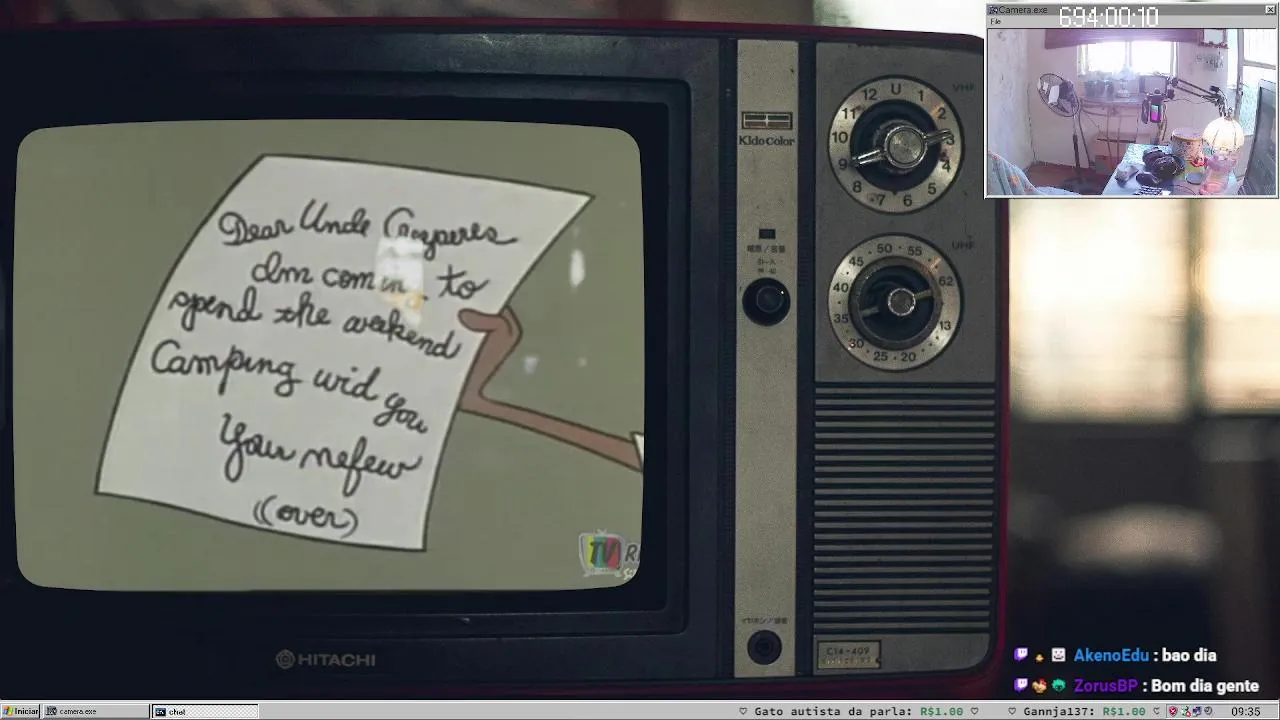 Camera.exe
694:00:10
File
Dear Uncle
dm comin to
spend the weekend
Camping wid you
Your nefew
(over)
TV R
HITACHI
KidoColor
VHF
12 U 1 2 3 4 5 6 7 8 9 10 11
UHF
50 55 62 13 20 25 30 35 40 45
C14-409
AkenoEdu : bao dia
ZorusBP : Bom dia gente
Iniciar
camera.exe
chat
♡ Gato autista da parla: R$1.00 ♡
♡ Gannja137: R$1.00
09:35